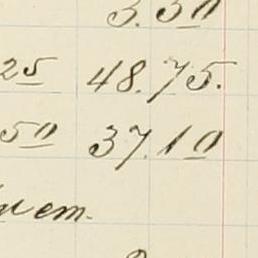 3.50
25 48.75.
50 37.10
em.